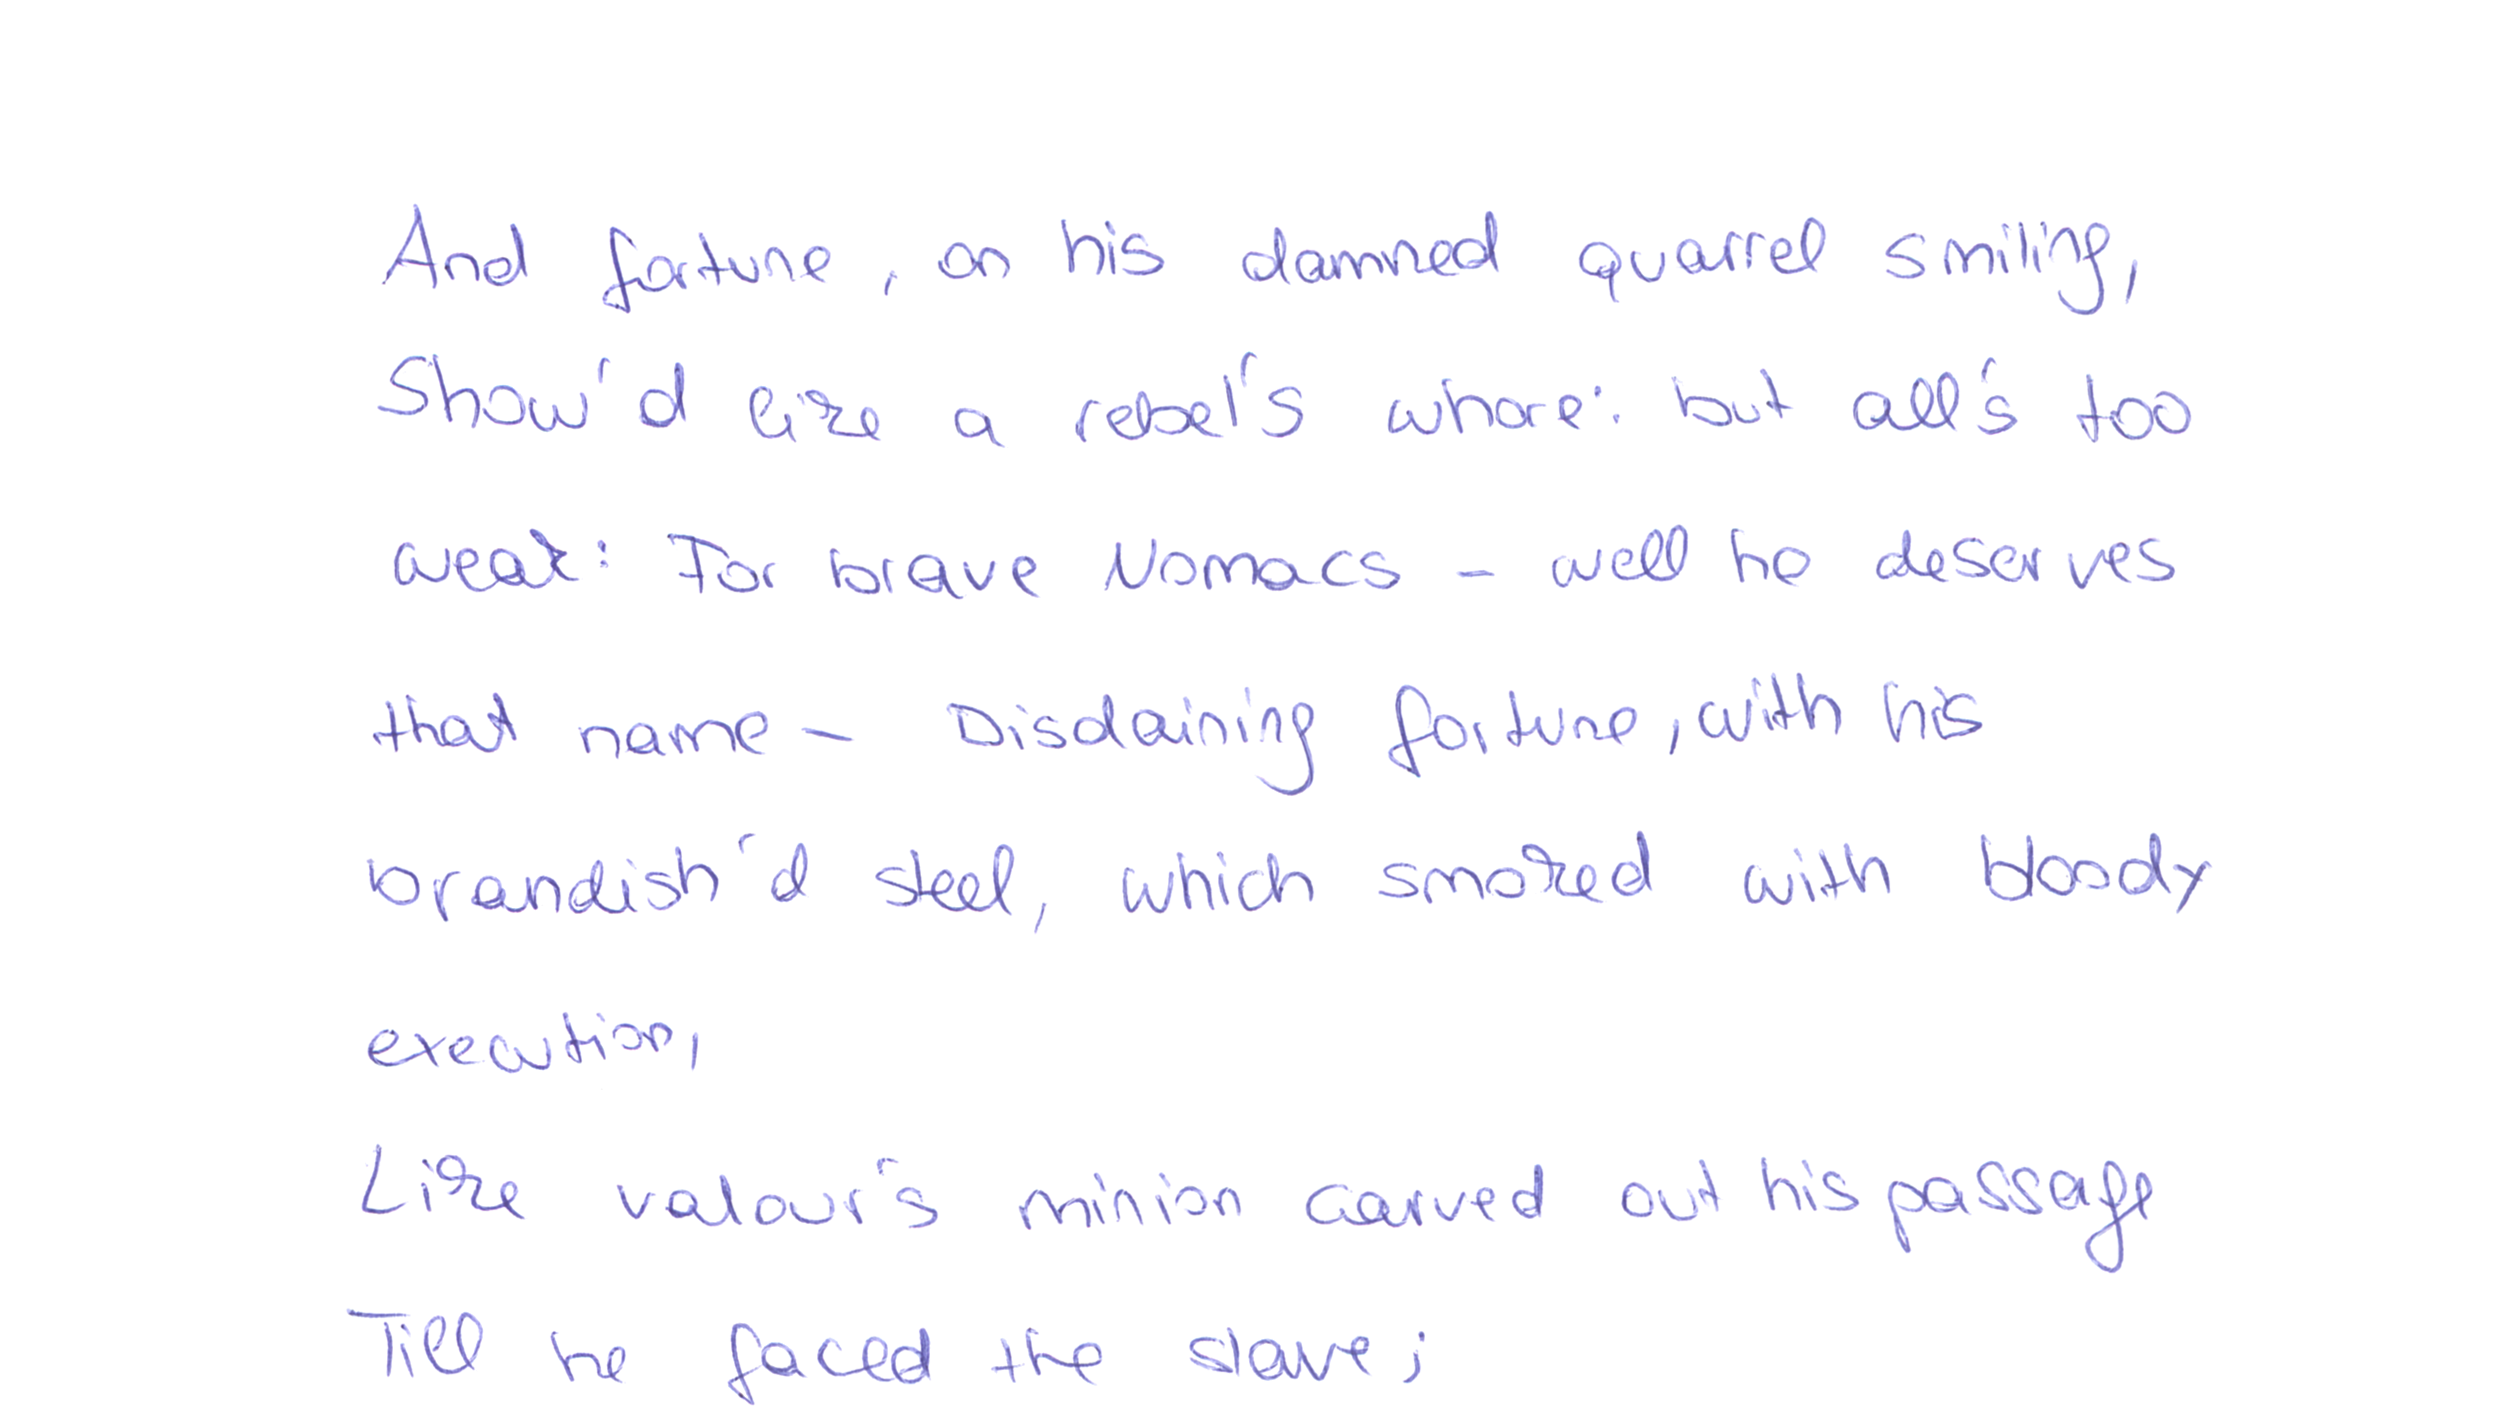 And fortune, on his damned quarrel smiling,
Show'd like a rebel's whore: but all's too
weak: For brave Nomacs - well he deserves
that name - Disdaining fortune, with his
brandish'd steel, which smoked with bloody
execution,
Like valour's minion carved out his passage
Till he faced the slave;